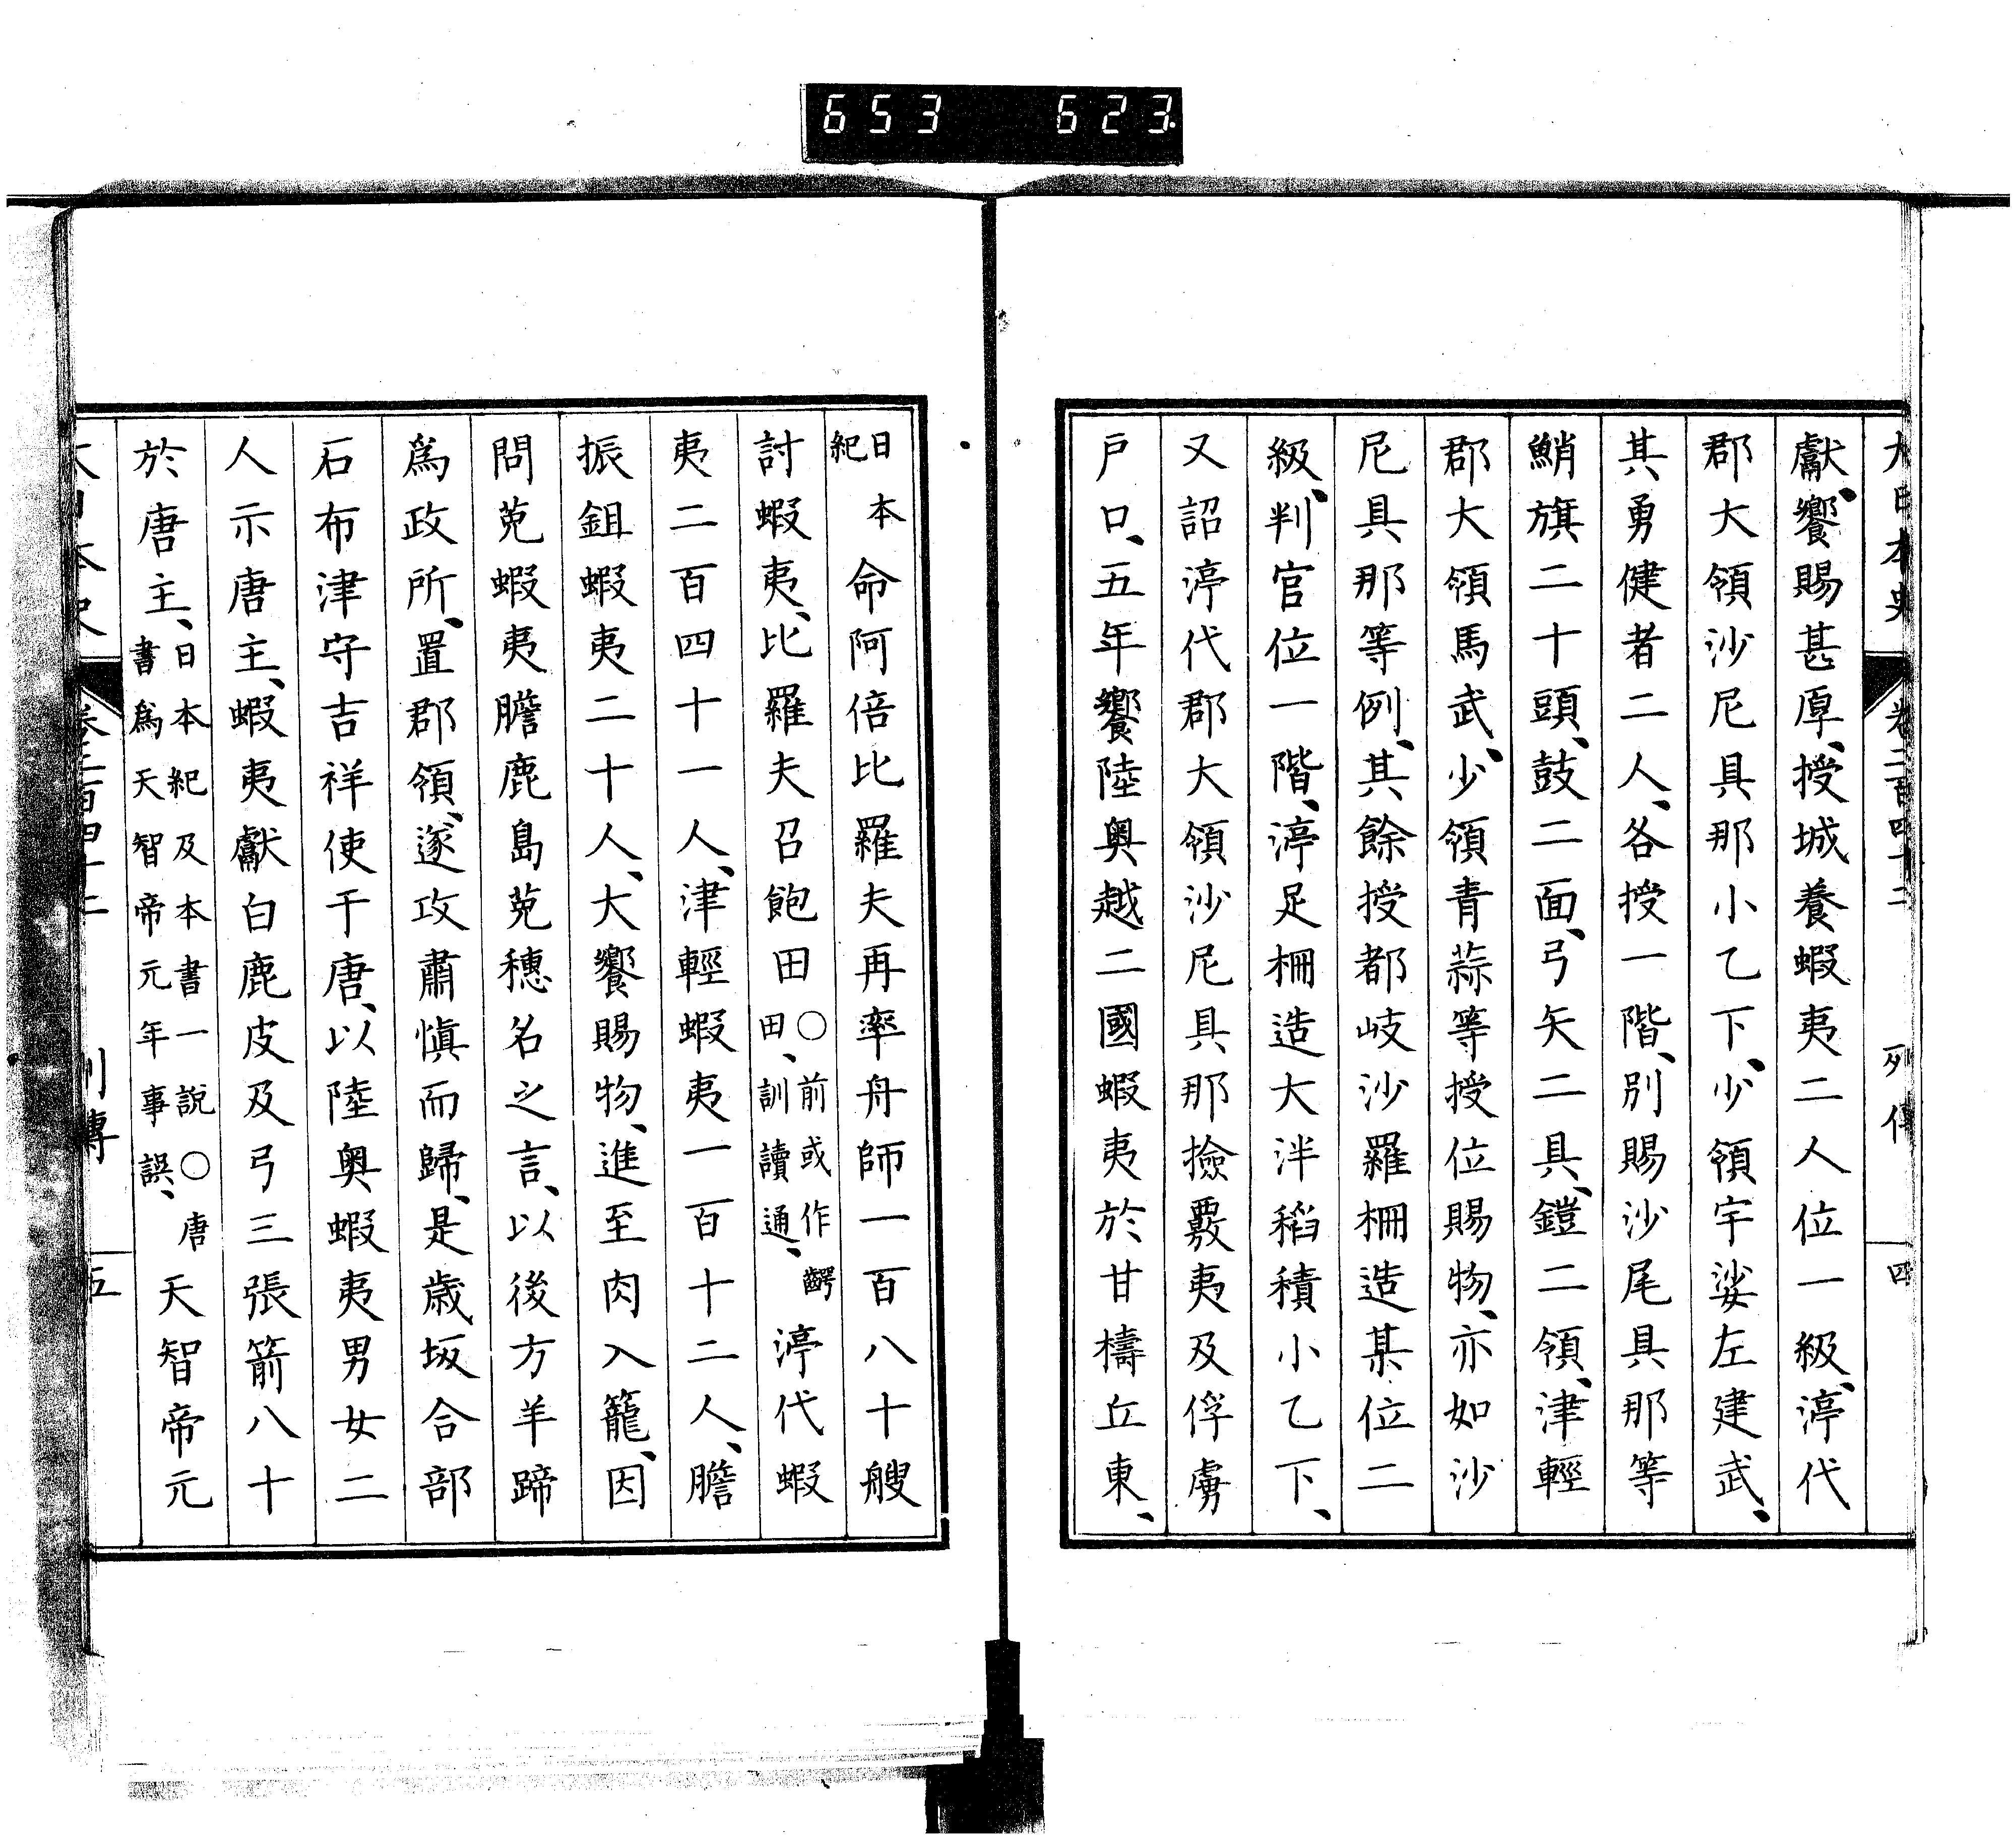 653 623
大日本史 卷二百四十二 列傳 四
獻、饗賜甚厚、授城養蝦夷二人位一級、渟代
郡大領沙尼具那小乙下、少領宇娑左建武、
其勇健者二人、各授一階、別賜沙尾具那等
鮹旗二十頭、鼓二面、弓矢二具、鎧二領、津輕
郡大領馬武、少領青蒜等授位賜物、亦如沙
尼具那等例、其餘授都岐沙羅柵造某位二
級、判官位一階、渟足柵造大泮稻積小乙下、
又詔渟代郡大領沙尼具那撿覈夷及俘虜
戶口、五年饗陸奧越二國蝦夷於甘檮丘東、
日本
紀
命阿倍比羅夫再率舟師一百八十艘
討蝦夷、比羅夫召飽田
○前或作齶
田、訓讀通、
渟代蝦
夷二百四十一人、津輕蝦夷一百十二人、膽
振鉏蝦夷二十人、大饗賜物、進至肉入籠、因
問菟蝦夷膽鹿島菟穗名之言、以後方羊蹄
爲政所、置郡領、遂攻肅愼而歸、是歲坂合部
石布津守吉祥使于唐、以陸奧蝦夷男女二
人示唐主、蝦夷獻白鹿皮及弓三張箭八十
於唐主、
日本紀及本書一說○唐
書爲天智帝元年事誤、
天智帝元
大日本史 卷二百四十二 列傳 五